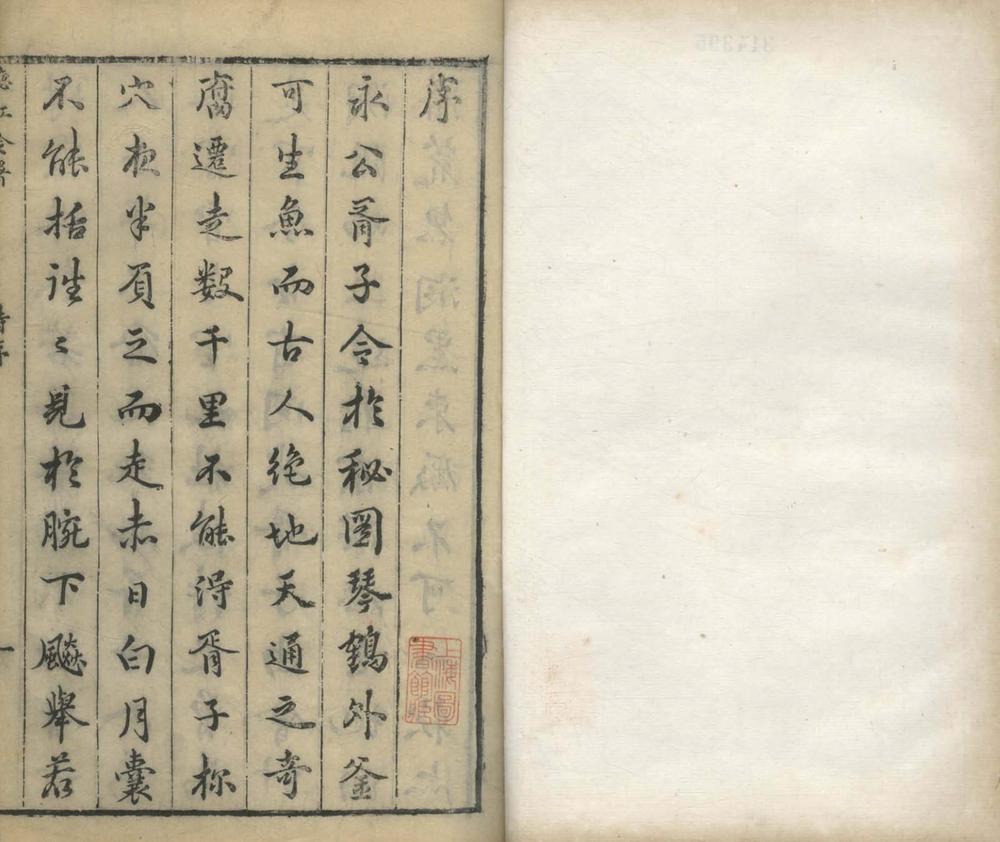 序
永公胥子令於秘圖琴鶴外釜
可生魚而古人絶地天通之奇
腐遷走数千里不能得胥子
穴夜半負之而走赤日白月囊
不能括往〻見於腕下飈舉若
一
上海圖
書館藏